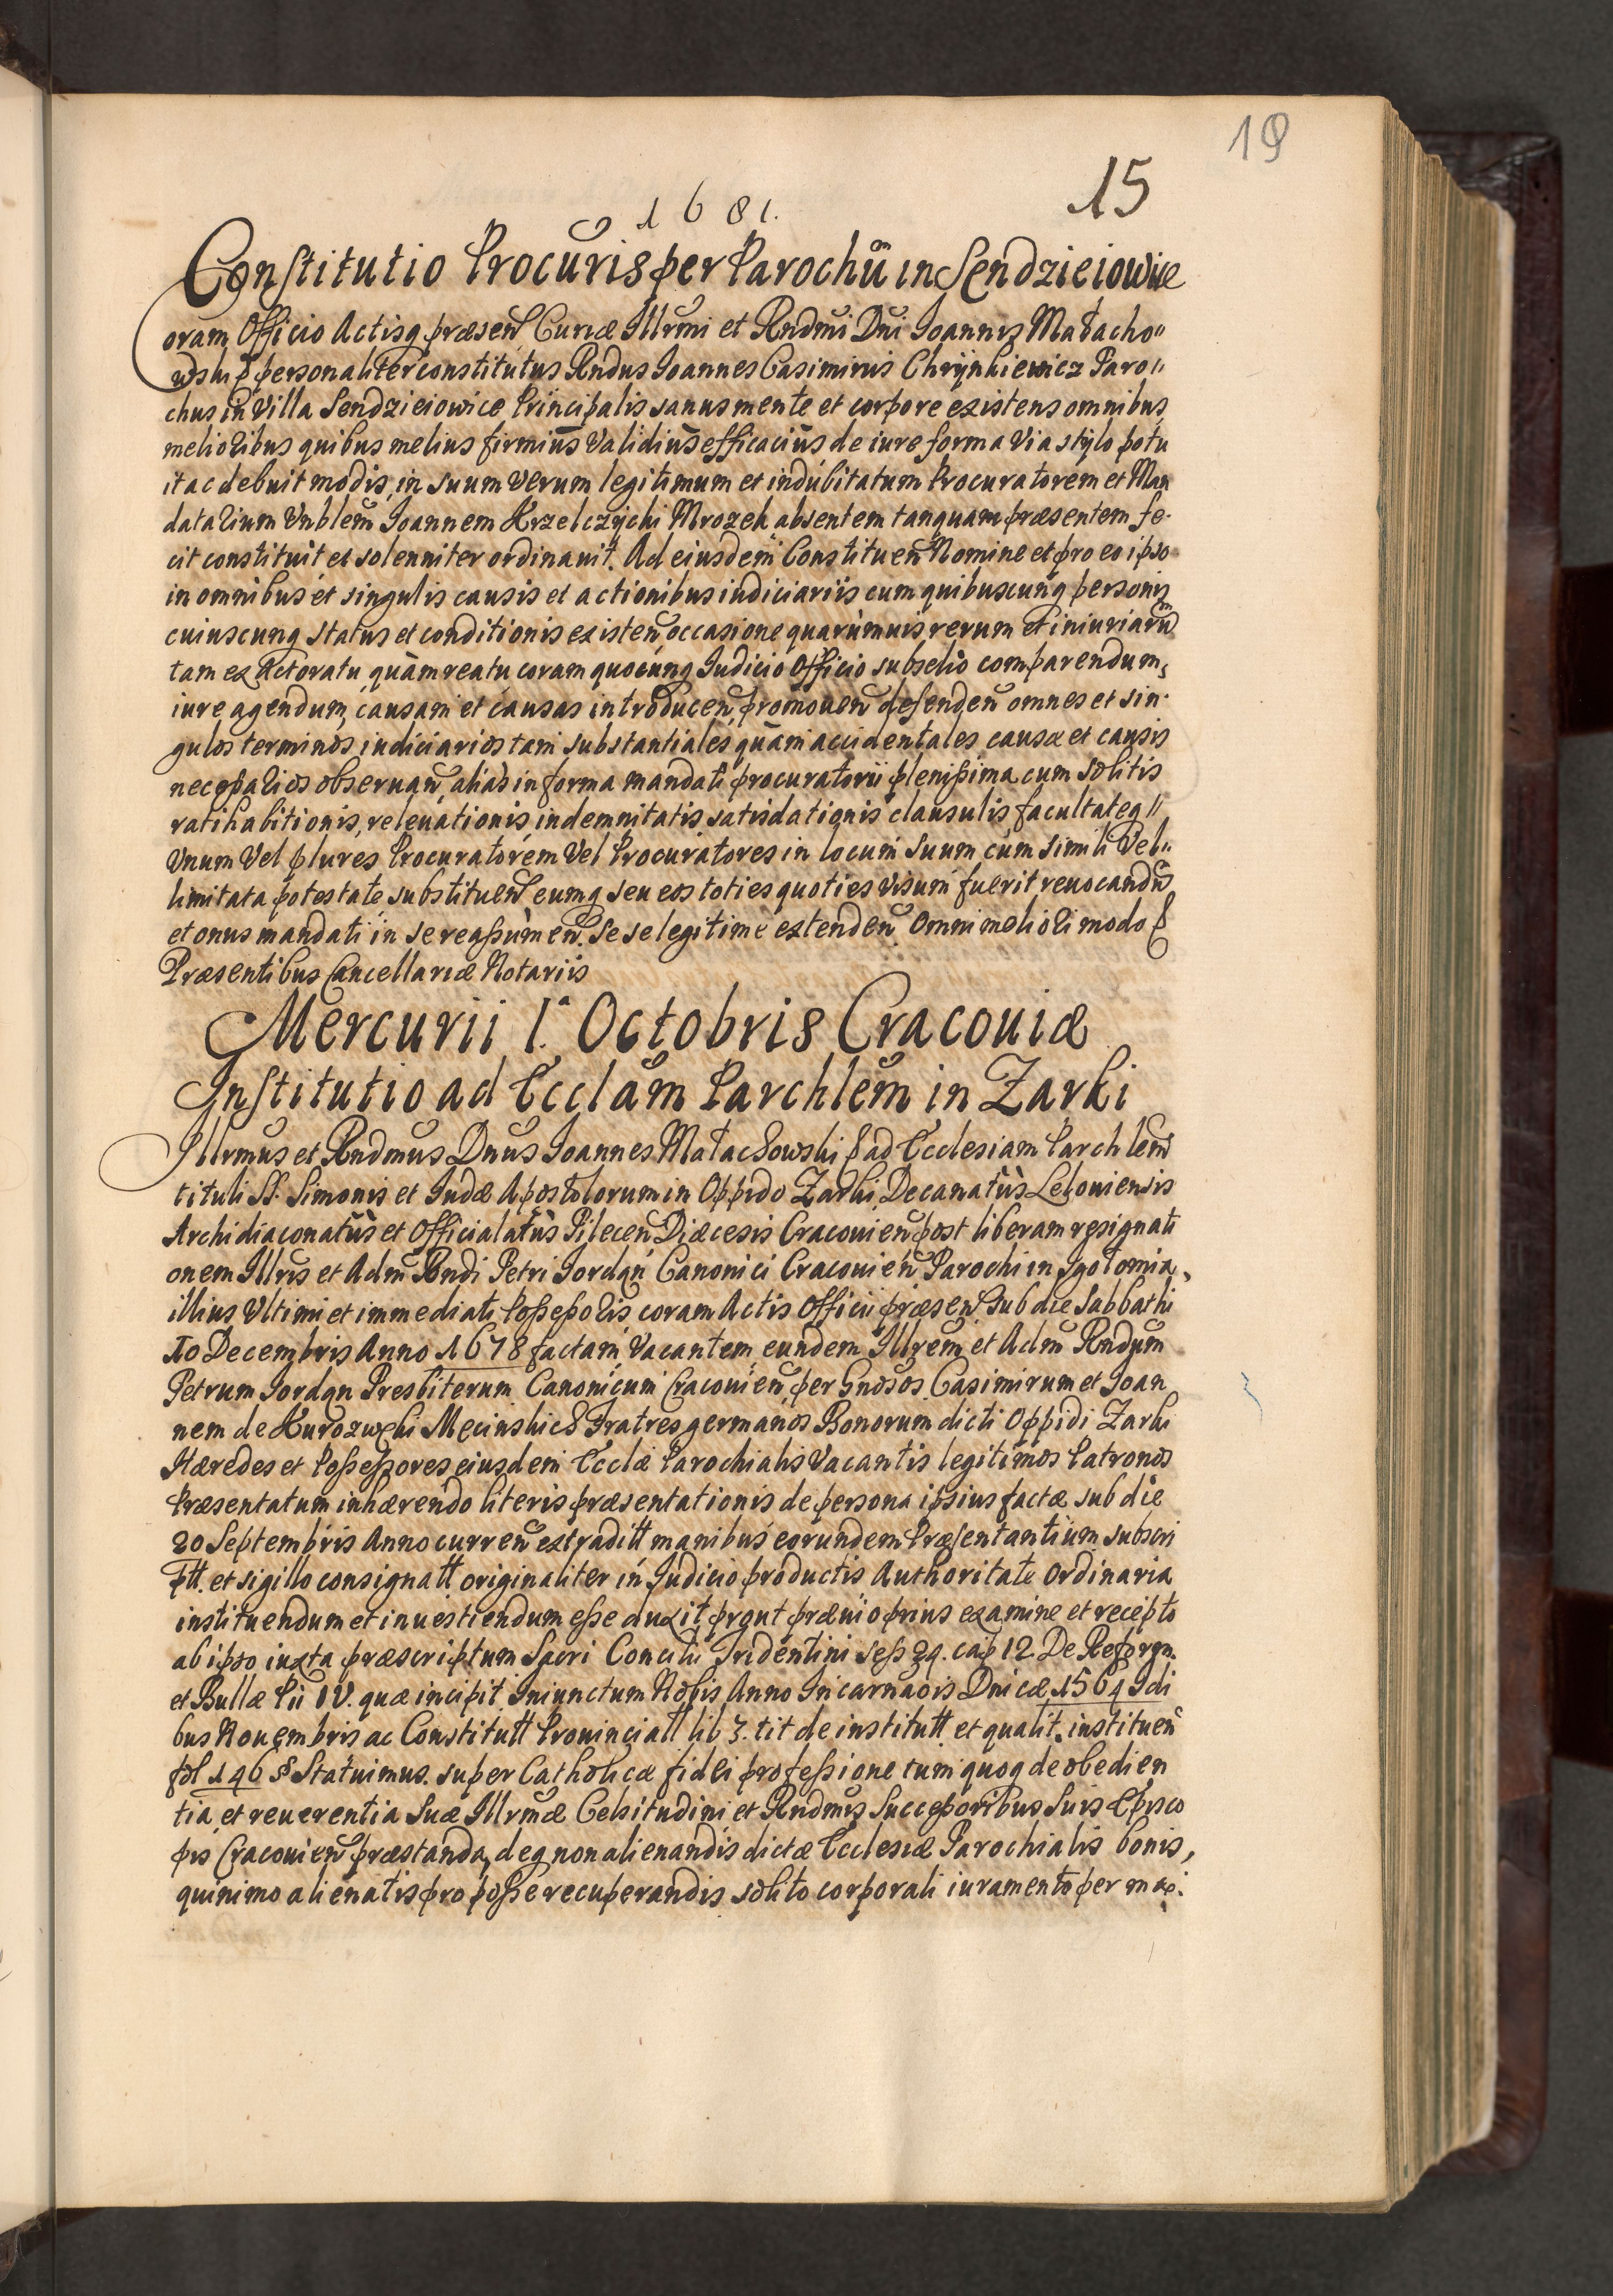 19
15
1681.
Constitutio Procuris per Parochū in Sendzieiowice
Coram Officio Actisq præsen Curiæ Illrmi et Rndmi Dni Joannis Małacho〃
wski personaliter constitutus Rndus Joannes Casimirus Chrÿnkiewicz Paro〃
chus in Villa Sendzieiowice Principalis sanus mente et corpore existens omnibus
melioribus quibus melius firmius validius efficacius de iure forma via stÿlo potu
it ac debuit modis, in suum verum legitimum et indubitatum Procuratorem et Man
datarium Vnblem Joannem Krzelczÿcki Mrozek absentem tanquam præsentem fe-
cit constituit et solenniter ordinauit. Ad eiusdem Constituen Nomine et pro eo ipso
in omnibus et singulis causis et actionibus iudiciariis cum quibuscunq personis
cuiuscunq status et conditionis existen occasione quarumuis rerum et iniuriarū
tam ex Actoratu quàm reatu coram quocunq Judicio Officio subselio comparendum,
iure agendum, causam et causas introducen promouen defenden omnes et sin-
gulos terminos iudiciarios tam substantiales quàm accidentales causæ et causis
necessarios obseruan, alias in forma mandati procuratorii plenissima cum solitis
ratihabitionis, releuationis, indemnitatis satisdationis clausulis facultateq〃
Vnum Vel plures Procuratorem Vel Procuratores in locum suum cum simili Vel〃
limitata potestate substituen eumq seu eos toties quoties visum fuerit reuocandū
et onus mandati in se reassumen. Se se legitime extenden. Omni meliori modo &
Præsentibus Cancellariæ Notariis
Mercurii 1ª Octobris Cracouiæ
Institutio ad Ecclām Parchlem in Zarki
Illrmus et Rndmus Dnus Joannes Małachowski & ad Ecclesiam Parchlem
tituli SS. Simonis et Judæ Apostolorum in Oppido Zarki Decanatùs Leloviensis
Archidiaconatùs et Officialatùs Pilecen Diæcesis Cracouien post liberam resignati
onem Illris et Adm Rndi Petri Jordan Canonici Cracouien Parochi in Igołomia,
illius Vltimi et immediati Possessoris coram Actis Officii præsen sub die Sabbathi
10 Decembris Anno 1678 factam, Vacantem, eundem Illrem et Adm Rndum
Petrum Jordan Presbiterum Canonicum Cracouien, per Gnosos Casimirum et Joan
nem de Kurozwęki Męcinskie & Fratres germanos Bonorum dicti Oppidi Zarki
Hæredes et Possessores eiusdem Ecclæ Parochialis Vacantis legitimos Patronos
Præsentatum inhærendo literis præsentationis de persona ipsius factæ sub die
20 Septembris Anno curren extraditt manibus eorundem Præsentantium subscri
ptt. et sigillo consignatt originaliter in Judicio productis Authoritate Ordinaria
instituendum et inuestiendum esse duxit, prout præuio prius examine et recepto
ab ipso iuxta præscriptum Sacri Concilii Tridentini sess 24. cap 12. De Reform.
et Bullæ Pii IV. quæ incipit Iniunctum Nobis Anno Incarnaois Dnicæ 1564 Idi
bus Nouembris ac Constitutt Prouinciall lib 3. tit de institutt et qualit. instituen
fol 146 § Statuimus. super Catholicæ fidei professione tum quoq de obedien
tia et reuerentia Suæ Illrmæ Celsitudini et Rndmis Successoribus Suis Episco
pis Cracouien præstanda, deq non alienandis dictæ Ecclesiæ Parochialis bonis,
quinimo alienatis pro posse recuperandis solito corporali iuramento per